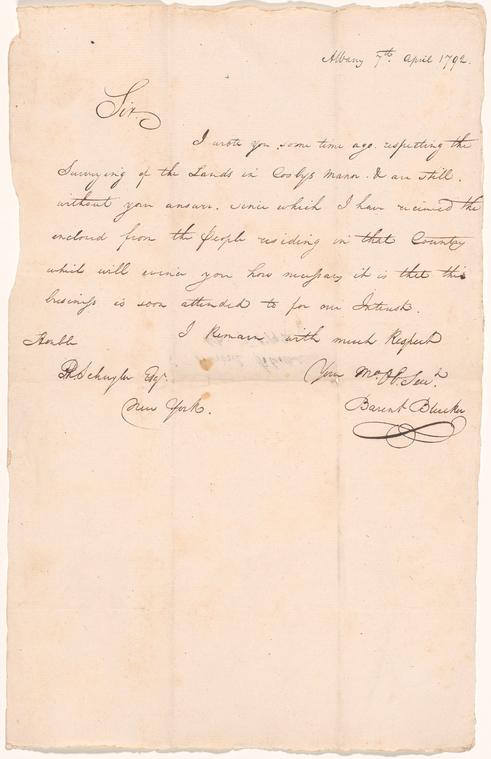 Albany 7th April 1792.
Sir.
I wrote you some time ago respecting the
Surveying of the Lands in Cosbys Manor & am still
without your answer. since which I have received the
enclosed from the People residing in that Country
which will evince you how necessary it is that this
business is soon attended to for our Interest.
I Remain with much Respect
Honble
Ph Schuyler Esqr.
Your Mo. Ob. Servt.
New York.
Barent Bleecker